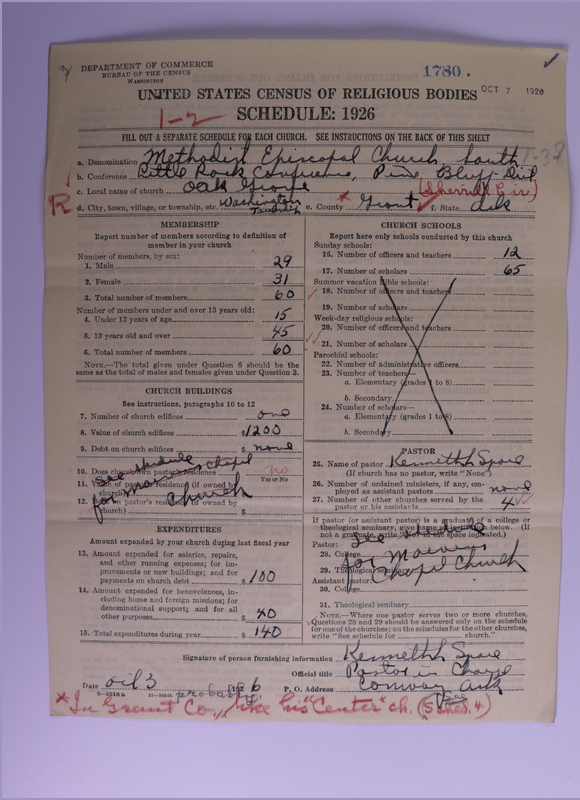 DEPARTMENT OF COMMERCE
BUREAU OF THE CENSUS
WASHINGTON
1780.
UNITED STATES CENSUS OF RELIGIOUS BODIES
OCT 7 1926
SCHEDULE: 1926
1-2
FILL OUT A SEPARATE SCHEDULE FOR EACH CHURCH. SEE INSTRUCTIONS ON THE BACK OF THIS SHEET
a. Denomination Methodist Episcopal Church, South
b. Conference Little Rock Conference, Pine Bluff Dist
c. Local name of church Oak Grove (Sherrill Cir.)
R
d. City, town, village, or township, etc. Washington Township e. County * Grant f. State Ark
MEMBERSHIP
Report number of members according to definition of
member in your church
Number of members, by sex:
1. Male 29
2. Female 31
3. Total number of members 60
Number of members under and over 13 years old:
4. Under 13 years of age 15
5. 13 years old and over 45
6. Total number of members 60
NOTE.—The total given under Question 6 should be
same as the total of males and females given under Question 3.
CHURCH BUILDINGS
See instructions, paragraphs 10 to 12
7. Number of church edifices one
8. Value of church edifices $1200
9. Debt on church edifices $ none
10. Does church own pastor's residence no
Yes or No
11. Value of pastor's residency (if owned by
church)
12. on pastor's residence (if owned by
church) $
See schedule
for chapel
church
EXPENDITURES
Amount expended by your church during last fiscal year
13. Amount expended for salaries, repairs,
and other running expenses; for im-
provements or new buildings; and for
payments on church debt $ 100
14. Amount expended for benevolences, in-
cluding home and foreign missions; for
denominational support; and for all
other purposes $ 40
15. Total expenditures during year $ 140
CHURCH SCHOOLS
Report here only schools conducted by this church
Sunday schools:
16. Number of officers and teachers 12
17. Number of scholars 65
Summer vacation Bible schools:
18. Number of officers and teachers
19. Number of scholars
Week-day religious schools:
20. Number of officers and teachers
21. Number of scholars
Parochial schools:
22. Number of administrative officers
23. Number of teachers—
a. Elementary (grades 1 to 8)
b. Secondary
24. Number of scholars—
a. Elementary (grades 1 to 8)
b. Secondary
PASTOR
25. Name of pastor Kenneth Spore
(If church has no pastor, write "None")
26. Number of ordained ministers, if any, em-
ployed as assistant pastors none
27. Number of other churches served by the
pastor or his assistants 4
If pastor (or assistant pastor) is a graduate of a college or
theological seminary, give name of (If
not a graduate, write "Not" in the space indicated.)
Pastor:
28. College
29. Theological seminary
See schedule
for
Chapel Church
Assistant pastor:
30. College
31. Theological seminary
NOTE.—Where one pastor serves two or more churches,
Questions 28 and 29 should be answered only on the schedule
for one of the churches; on the schedules for the other churches,
write "See schedule for church."
Signature of person furnishing information Kenneth Spore
Official title Pastor in Charge
Date 3 1926 P. O. Address Conway Ark
probably
* In Grant Co., like his "Center" ch. (See Sched. 4)